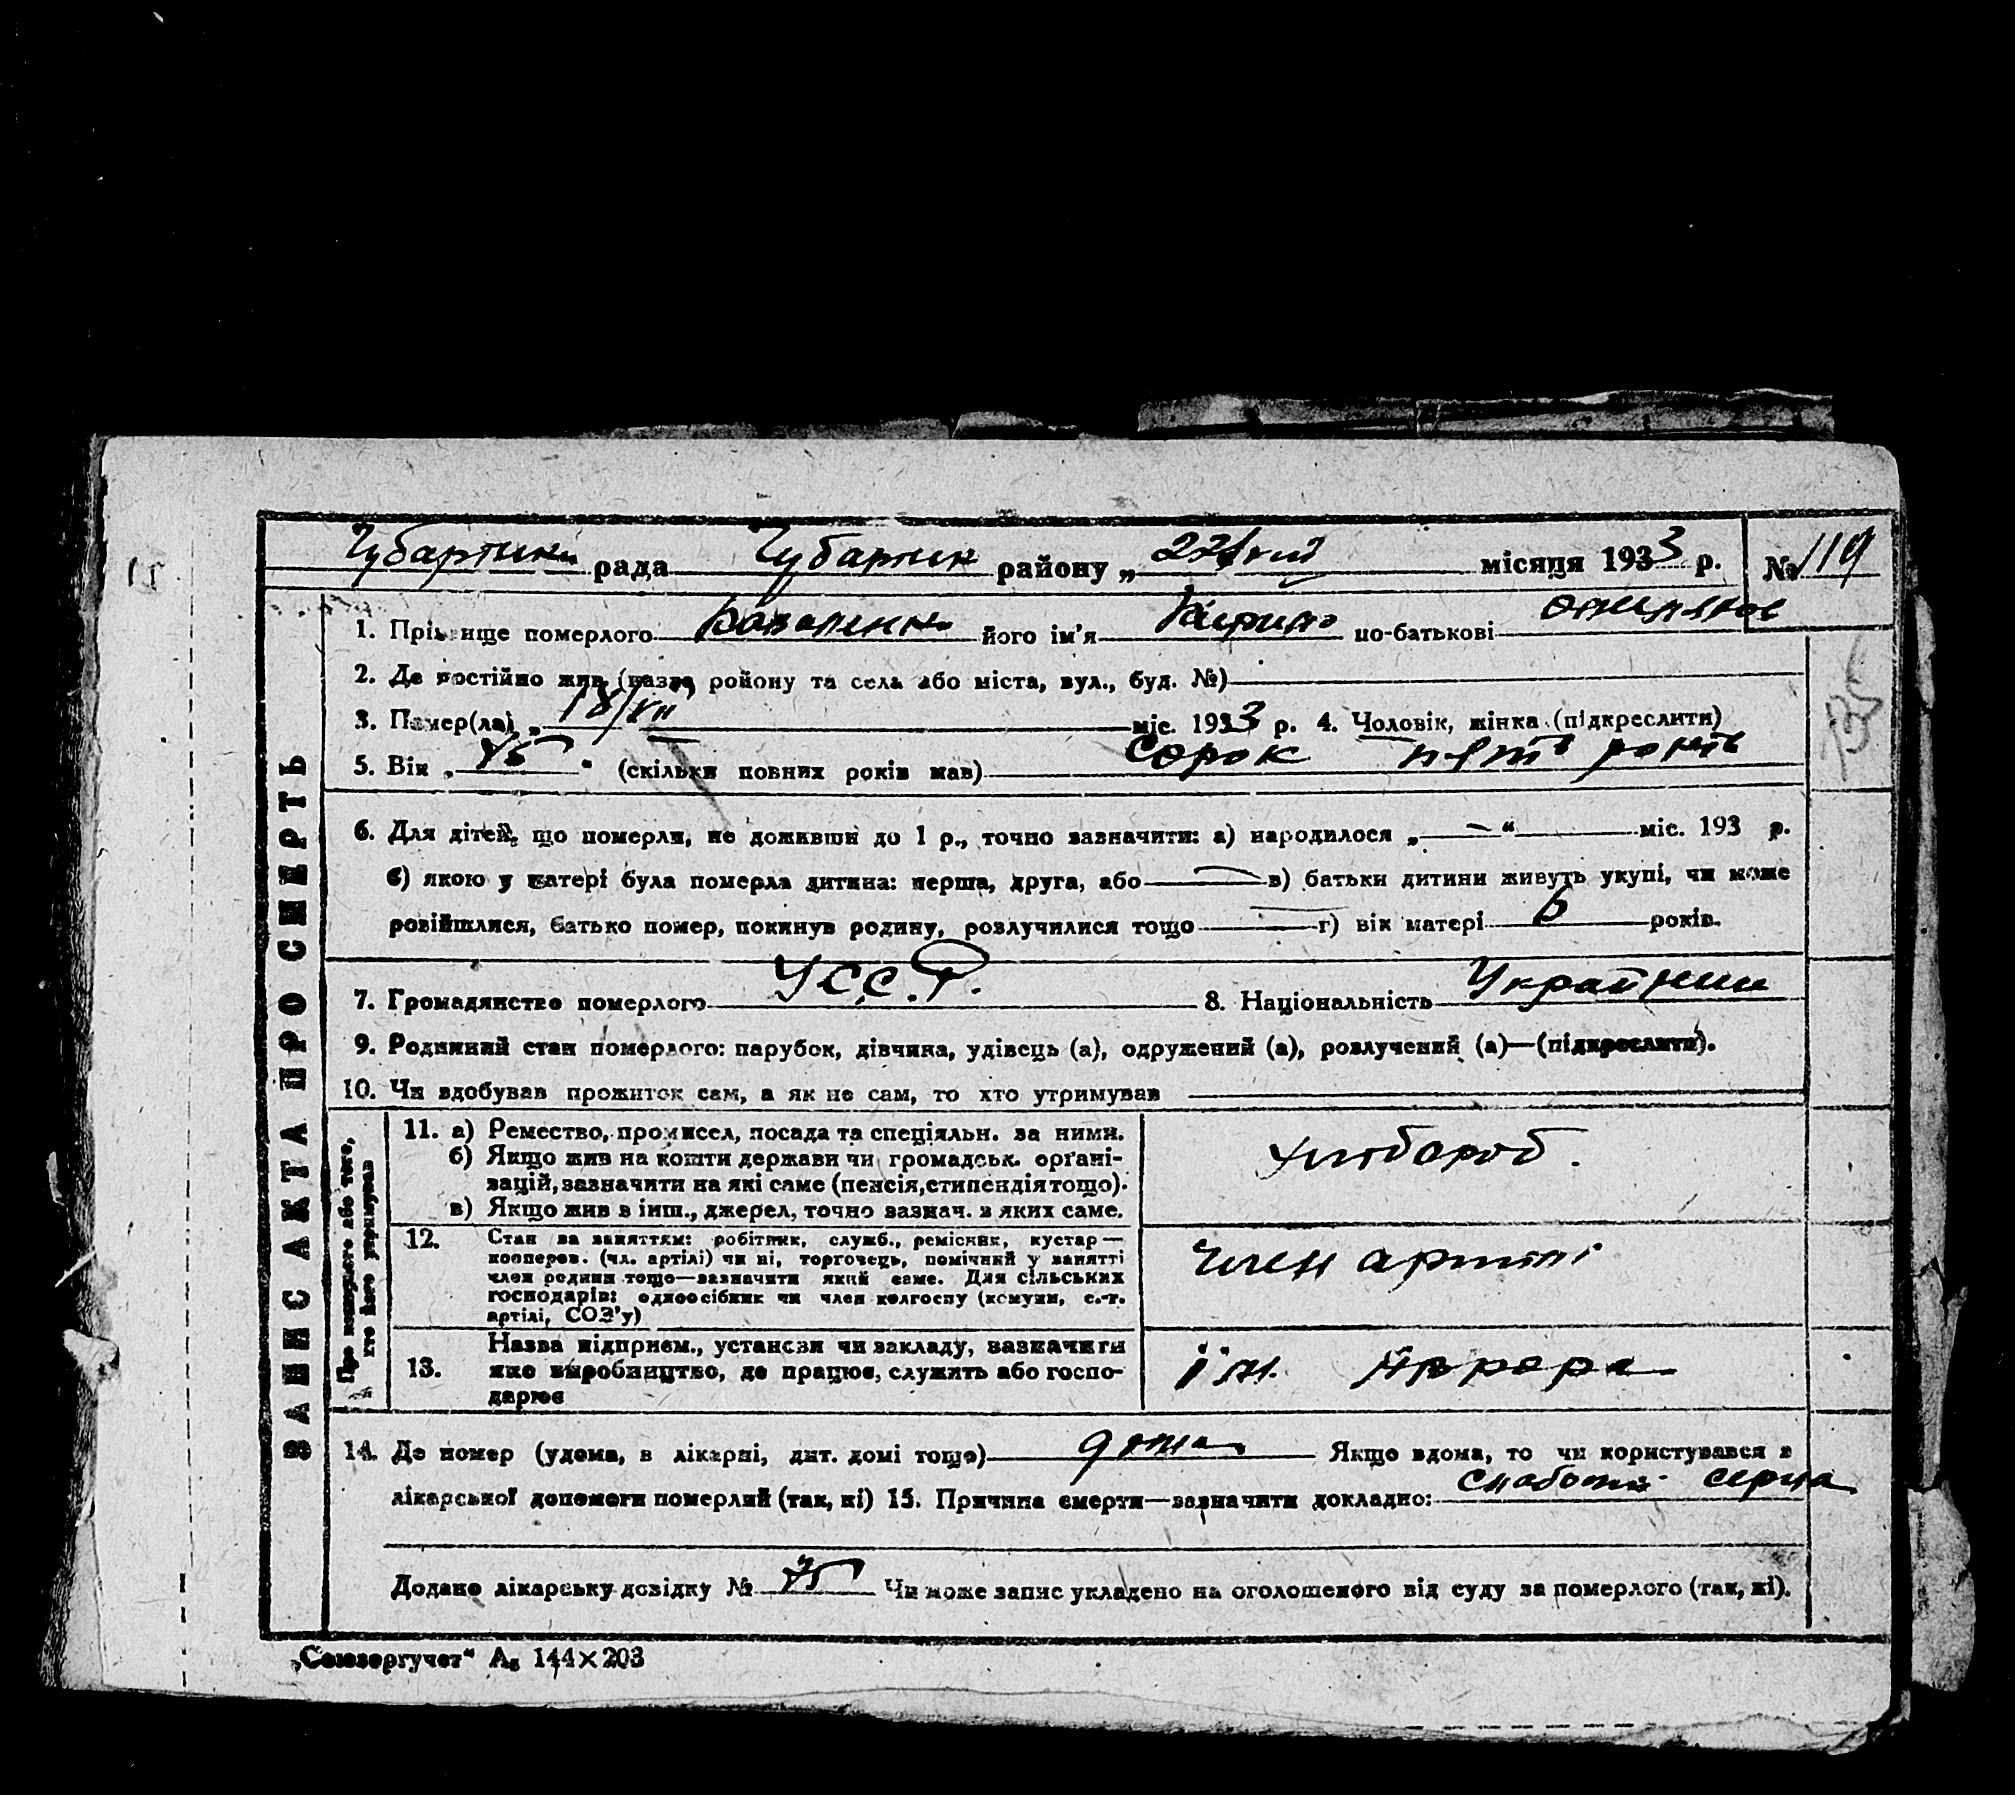 Чубарськ рада Чубарськ району „ 22/VIII місяця 1933 р. № 119
1. Прізвище померлого Коваленко його ім'я Кирило по-батькові
2. Де постійно жив (назва ройону та села або міста, вул., буд. №)
3. Помер(ла) „ 18/VII міс. 1933 р. 4. Чоловік, жінка (підкреслити)
5. Вік „ 45 " (скільки повних років мав) сорок пять років
6. Для дітей, що померли, не доживши до 1 р., точно зазначити: а) народилося „ — " міс. 193 р.
б) якою у матері була померла дитина: перша, друга, або — в) батьки дитини живуть укупі, чи може
розійшлися, батько помер, покинув родину, розлучилися тощо — г) вік матері років.
7. Громадянство померлого У.С.С.Р. 8. Національність Українець
9. Родинний стан померлого: парубок, дівчина, удівець (а), одружений (а), розлучений (а)—(підкреслити).
10. Чи здобував прожиток сам, а як не сам, то хто утримував
ЗАПИС АКТА ПРО СМЕРТЬ
Про померлого або того, хто його утримував
11. а) Ремество, промисел, посада та спеціяльн. за ними.
б) Якщо жив на кошти держави чи громадськ. органі-
зацій, зазначити на які саме (пенсія, стипендія тощо).
в) Якщо жив з інш., джерел, точно зазнач. з яких саме.
хлібороб.
12. Стан за заняттям: робітник, служб., ремісник, кустар—
кооперов. (чл. артілі) чи ні, торговець, помічний у занятті
член родини тощо—зазначити який саме. Для сільських
господарів: одноосібник чи член колгоспу (комуни, с.-г.
артілі, СОЗ'у)
член артілі
13. Назва підприєм., установи чи закладу, зазначити
яке виробництво, де працює, служить або госпо-
дарює
ім. Аврора
14. Де помер (удома, в лікарні, дит. домі тощо) дома Якщо вдома, то чи користувався з
лікарської допомоги померлий (так, ні) 15. Причина смерти—зазначити докладно: слабость серца
Додано лікарську довідку № 75 Чи може запис укладено на оголошеного від суду за померлого (так, ні).
„Союзоргучет" А₅ 144×203